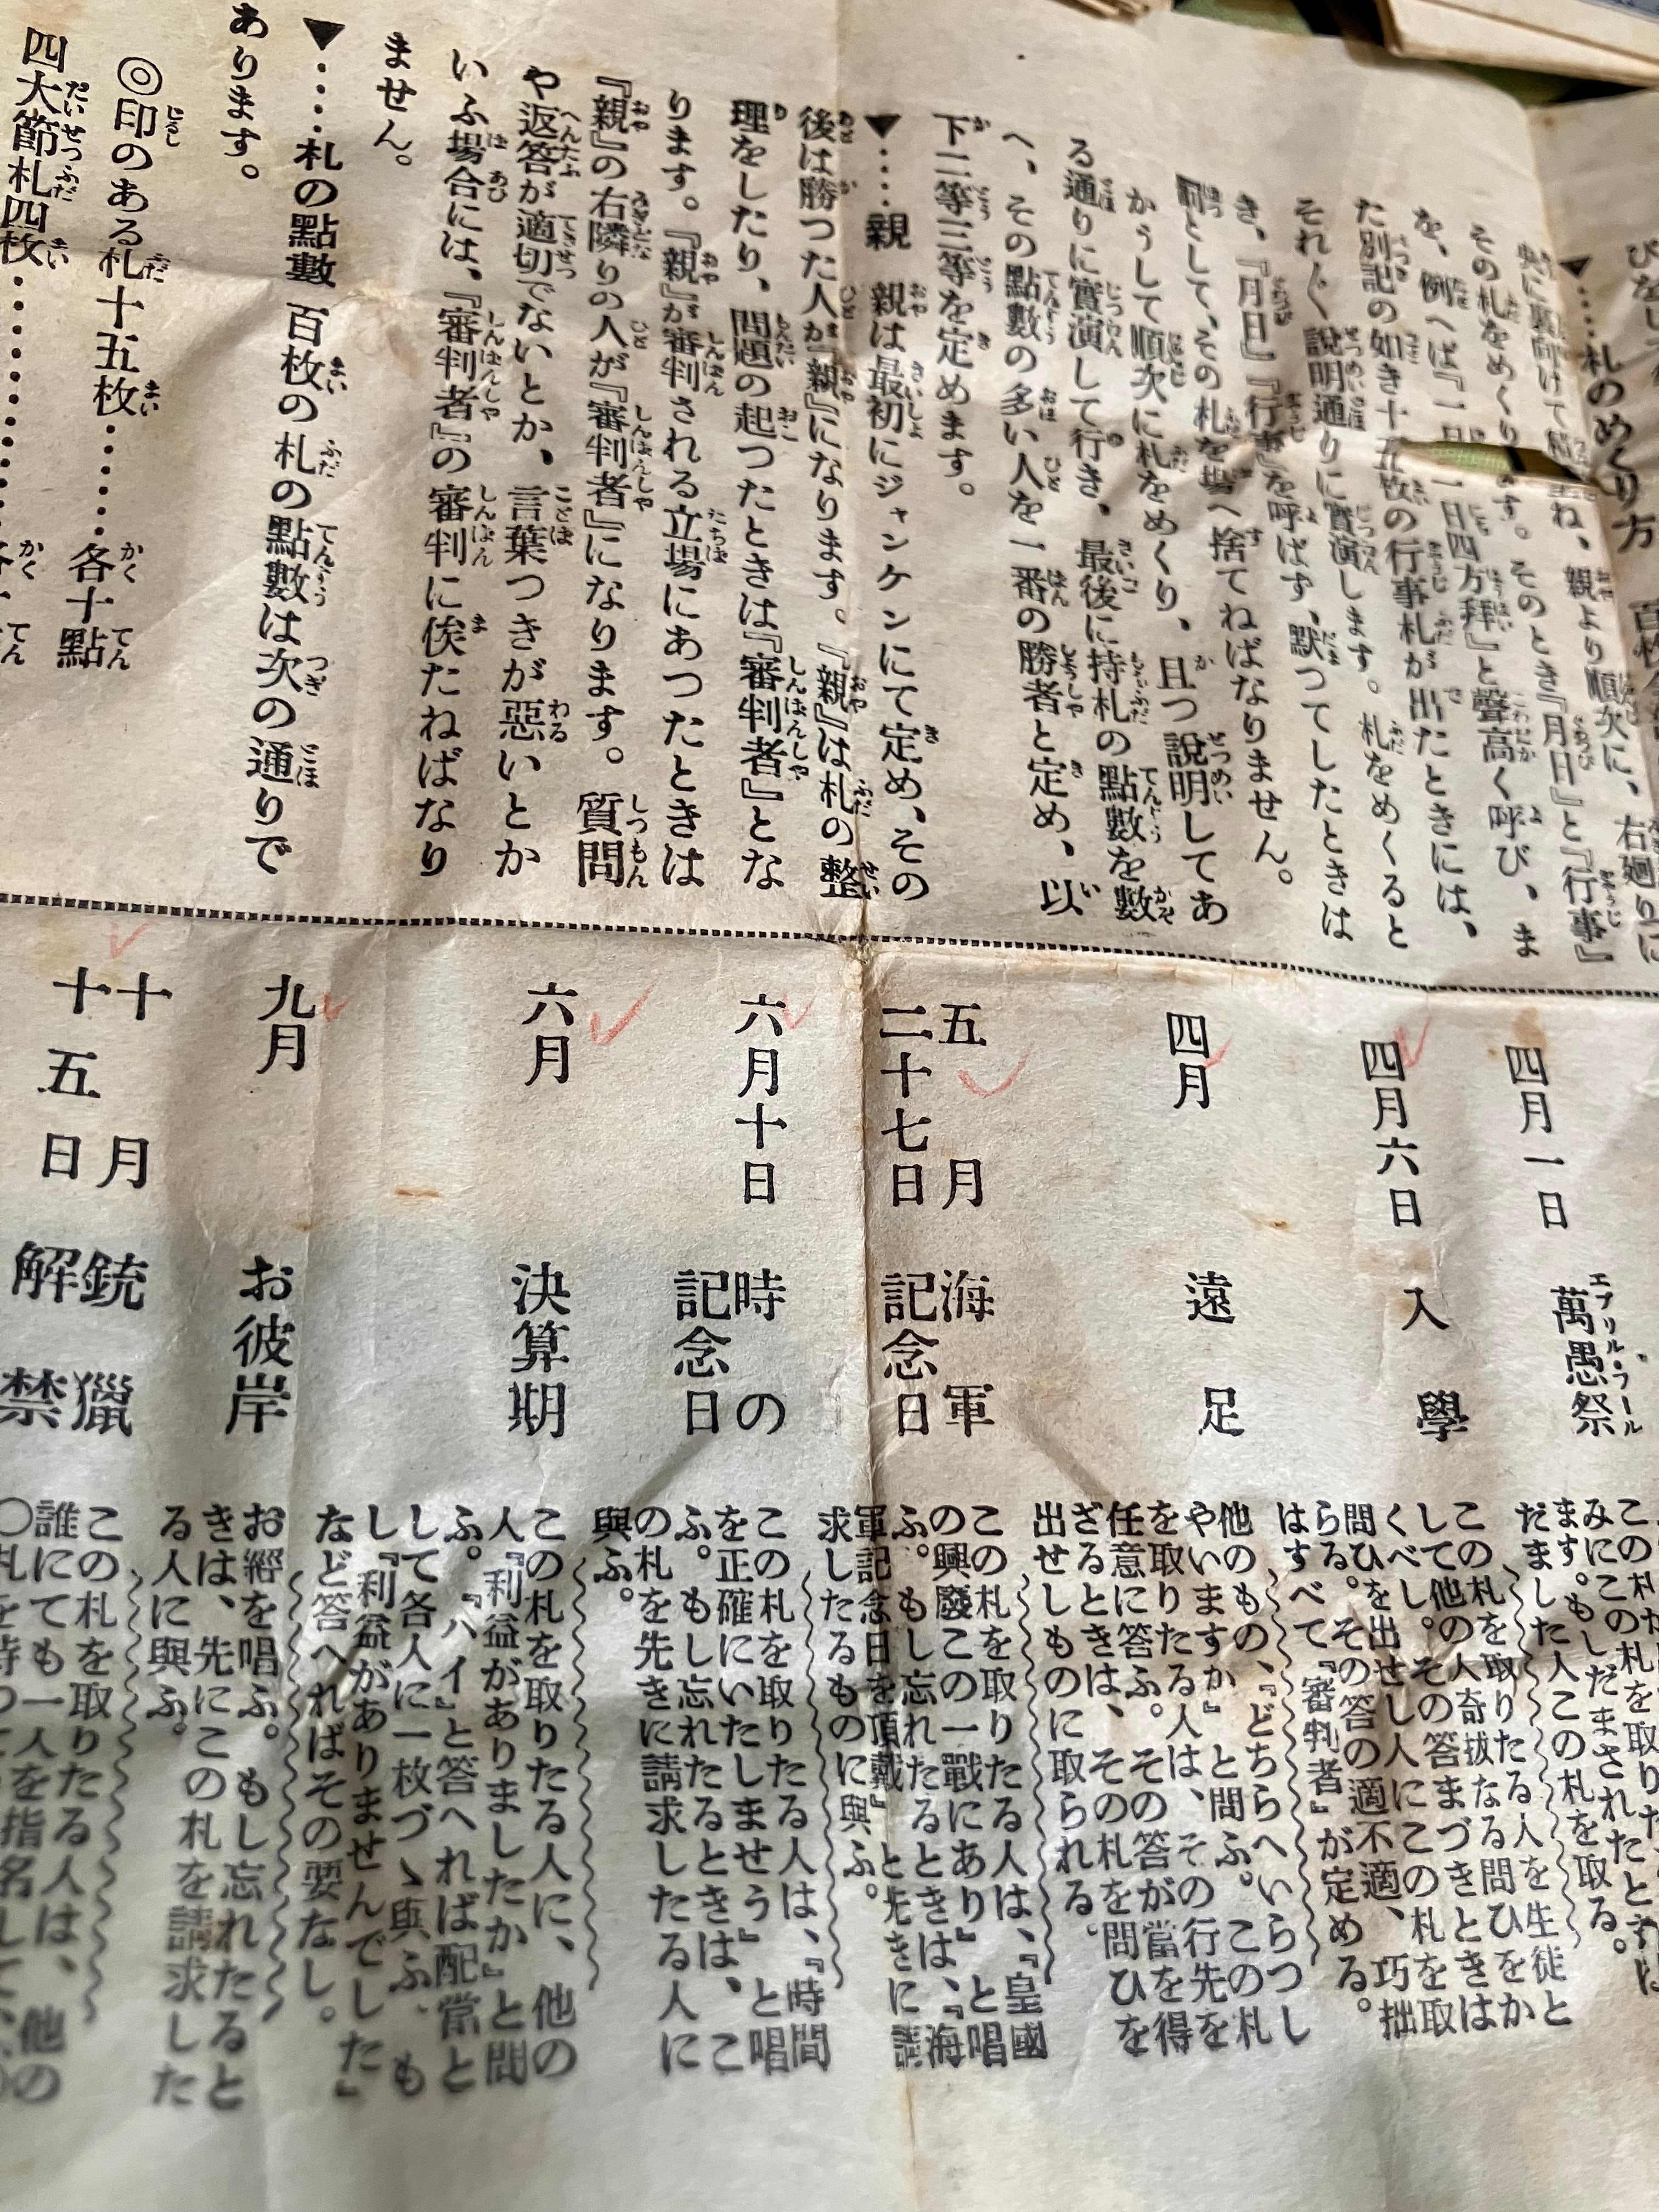 びをして
▼……札のめくり方
親より順次に、右廻りに
その札をめくります。そのとき『月日』と『行事』
を、例へば『一月一日四方拜』と聲高く呼び、ま
た別記の如き十五枚の行事札が出たときには、
それ〴〵説明通りに實演します。札をめくると
き、『月日』『行事』を呼ばず、默つてしたときは
罰として、その札を場へ捨てねばなりません。
かうして順次に札をめくり、且つ説明してあ
る通りに實演して行き、最後に持札の點數を數
へ、その點數の多い人を一番の勝者と定め、以
下二等三等を定めます。
▼……親 親は最初にジャンケンにて定め、その
後は勝つた人が『親』になります。『親』は札の整
理をしたり、問題の起つたときは『審判者』とな
ります。『親』が審判される立場にあつたときは
『親』の右隣りの人が『審判者』になります。質問
や返答が適切でないとか、言葉つきが惡いとか
いふ場合には、『審判者』の審判に俟たねばなり
ません。
▼……札の點數 百枚の札の點數は次の通りで
あります。
◎印のある札十五枚……各十點
四大節札四枚……
四月一日
萬愚祭
エプリル・フール
みにこの札を
ます。もしだまされたと
だました人この札を取る。
四月六日
入學
この札を取りたる人を生徒と
して他の人奇拔なる問ひをか
くべし。その答まづきときは
問ひを出せし人にこの札を取
らる。その答の適不適、巧拙
はすべて『審判者』が定める。
四月
遠足
他のもの、『どちらへいらつし
やいますか』と問ふ。この札
を取りたる人は、その行先を
任意に答ふ。その答が當を得
ざるときは、その札を問ひを
出せしものに取られる。
五月二十七日
海軍記念日
この札を取りたる人は、『皇國
の興廢この一戰にあり』と唱
ふ。もし忘れたるときは、『海
軍記念日を頂戴』と先きに請
求したるものに與ふ。
六月十日
時の記念日
この札を取りたる人は、『時間
を正確にいたしませう』と唱
ふ。もし忘れたるときは、こ
の札を先きに請求したる人に
與ふ。
六月
決算期
この札を取りたる人に、他の
人『利益がありましたか』と問
ふ。『ハイ』と答へれば配當と
して各人に一枚づゝ與ふ。も
し『利益がありませんでした』
など答へればその要なし。
九月
お彼岸
お經を唱ふ。もし忘れたると
きは、先にこの札を請求した
る人に與ふ。
十月十五日
銃獵解禁
この札を取りたる人は、他の
誰にても一人を指名して、